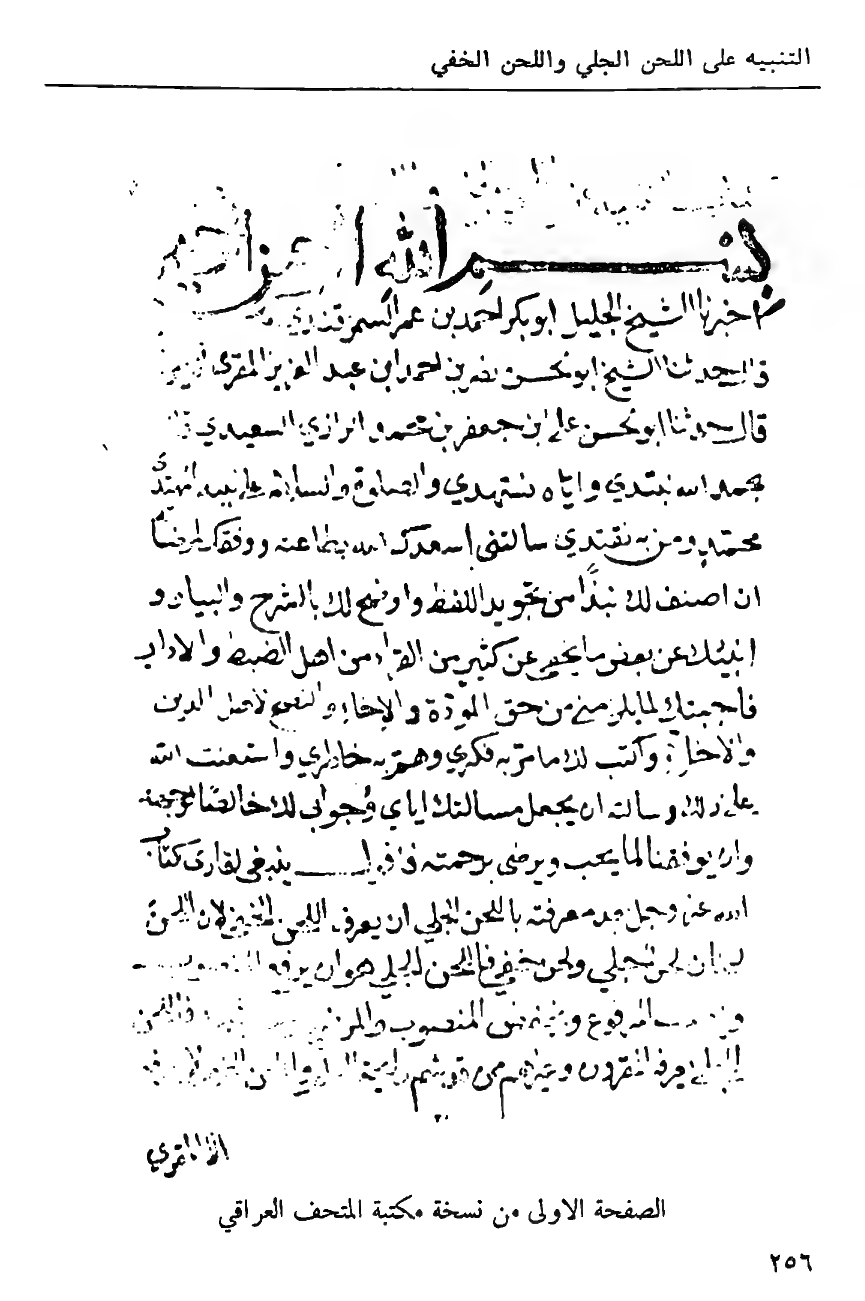 التنبيه على اللحن الجلي واللحن الخفي
بسم الله الرحمن الرحيم
اخبرنا الشيخ الجليل ابو بكر احمد بن عمر السمرقندي
قال حدثنا الشيخ ابو نحسن نصر بن احمد ابن عبد العزيز المقرئ
قال حدثنا ابو نحسن علي ابن جعفر بن محمد الرازي السعيدي
بحمد الله نبتدي واياه نستهدي والصلوة والسلام على نبيه المهتدى
محمد ومن به نقتدي سالتني اسعدك الله بطاعته ووفقك لمرضاته
ان اصنف لك نبذا من تجويد اللفظ واوضح لك بالشرح والبيان و
انبئك عن بعض ما يخفى عن كثير من القراء من اهل الضبط والاداء
فاجبتك لما يلزمني من حق المودة والاخاء والنصح لاهل الدين
واكتب لك ما مر به فكري وهم به خاطري واستعنت الله
على ذلك وسالته ان يجعل مسالتك اياي وجوابي لك خالصا
وان يوفقنا لما يحب ويرضى برحمته ينبغي لقارئ كتاب
الله عز وجل بعد معرفته باللحن الجلي ان يعرف اللحن الخفي لان اللحن
لحنان لحن جلي ولحن خفي فاللحن الجلي هو ان يرفع المنصوب
وينصب المرفوع ويخفض المنصوب والمرفوع
الجلي يعرفه المقرؤن
المقري
الصفحة الاولى من نسخة مكتبة المتحف العراقي
٢٥٦